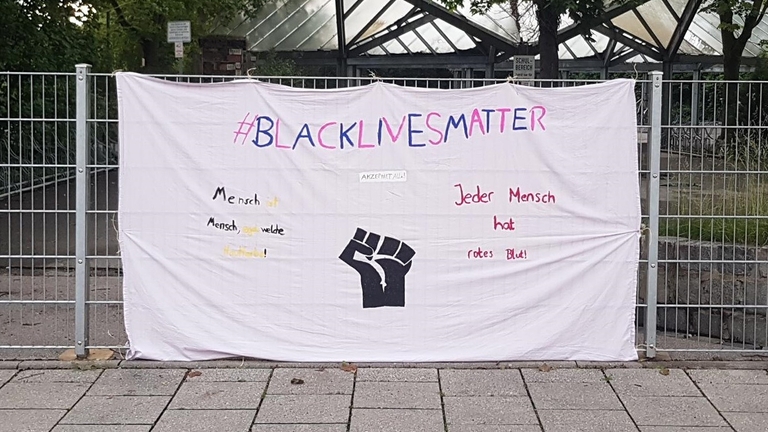 SCHUL-
BEREICH
#BLACKLIVESMATTER
AKZEPTIERT ALLE!
Mensch ist
Mensch, egal welche
Hautfarbe!
Jeder Mensch
hat
rotes Blut!